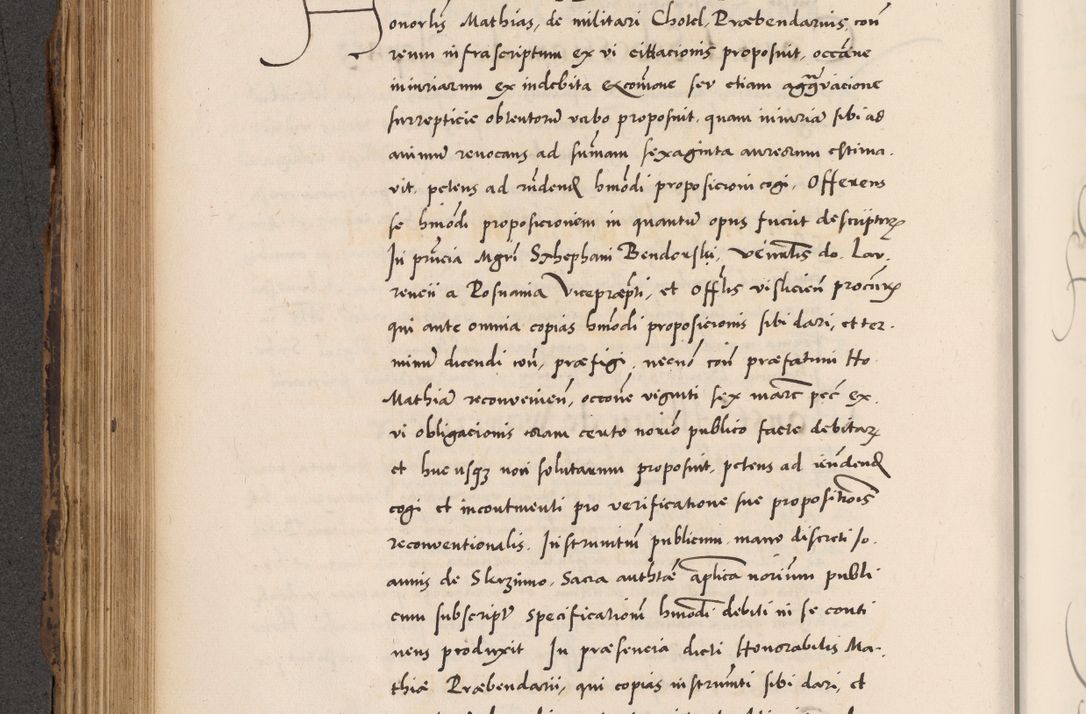 Honorlis Mathias, de militari Chotel, Præbendarius, con
reum infra scriptum ex vi cittacionis proposuit, occõne
iniuriarum ex indebita excõmone seu etiam aggrãvacione
surrepticie obtentorũ verbo proposuit, quam iniuriã sibi ad
animũ revocans ad summam sexaginta aureorum estima.
vit, petens ad rñdendũ hmõdi proposicioni cogi, Offerens
se hmõdi proposicionem in quantũ opus fuerit descripturũ
In pñcia Mgri Stephani Bendonski, veñrãlis do. Lau.
rencii a Posnania Vicepræpti, et Offlis vislicien̄ procurr
qui ante omnia copias hmõdi proposicionis sibi dari, et ter.
minũ dicendi con̄, præfigi, necnõ con̄ præfatum Ho.
Mathiã reconvenien̄, occone viginti sex marc̄ pec̄ ex.
vi obligacionis coram certo norio publico facte debitarũ
et hucusqȝ non solutarum proposuit, petens ad rñdendũ
cogi et incontinenti pro verificatione sue propositiõis
reconventionalis. Instrumtũ publicum manu discreti Jo.
annis de Skrzinno, Sacra authtẽ aplica norium publi
cum subscriptũ specificationem hmõdi debiti in se conti
nens produxit In præsencia dicti Honorabilis Ma.
thiæ Præbendarii, qui copias instrumti sibi dari, et